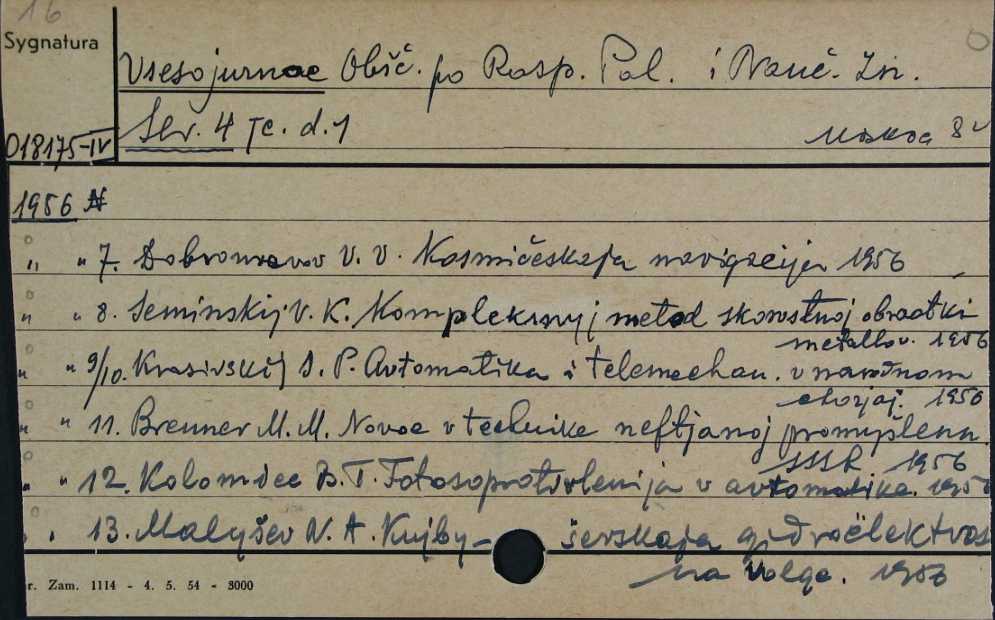 16
Sygnatura
Vsesojuznoe Obšč. po Rasp. Pol. i Nauč. Zn.
Ser. 4 Te. d. 1
018175-IV
Moskva 8º
1956 N
" " 7. Dobronravov V. V. Kosmičeskaja navigacija 1956
" " 8. Seminskij V. K. Kompleksnyj metod skorostnoj obraotki
metallov. 1956
" " 9/10. Krasivskij S. P. Avtomatika i telemechan. v narodnom
chozjaj. 1956
" " 11. Brenner M. M. Novoe v technike neftjanoj promyšlenn.
SSSR 1956
" " 12. Kolomiec B. T. Fotosoprotivlenija v avtomatike. 1956
" " 13. Malyšev N. A. Kujby- ševskaja gidroèlektros
na Volge. 1956
r. Zam. 1114 - 4. 5. 54 - 3000